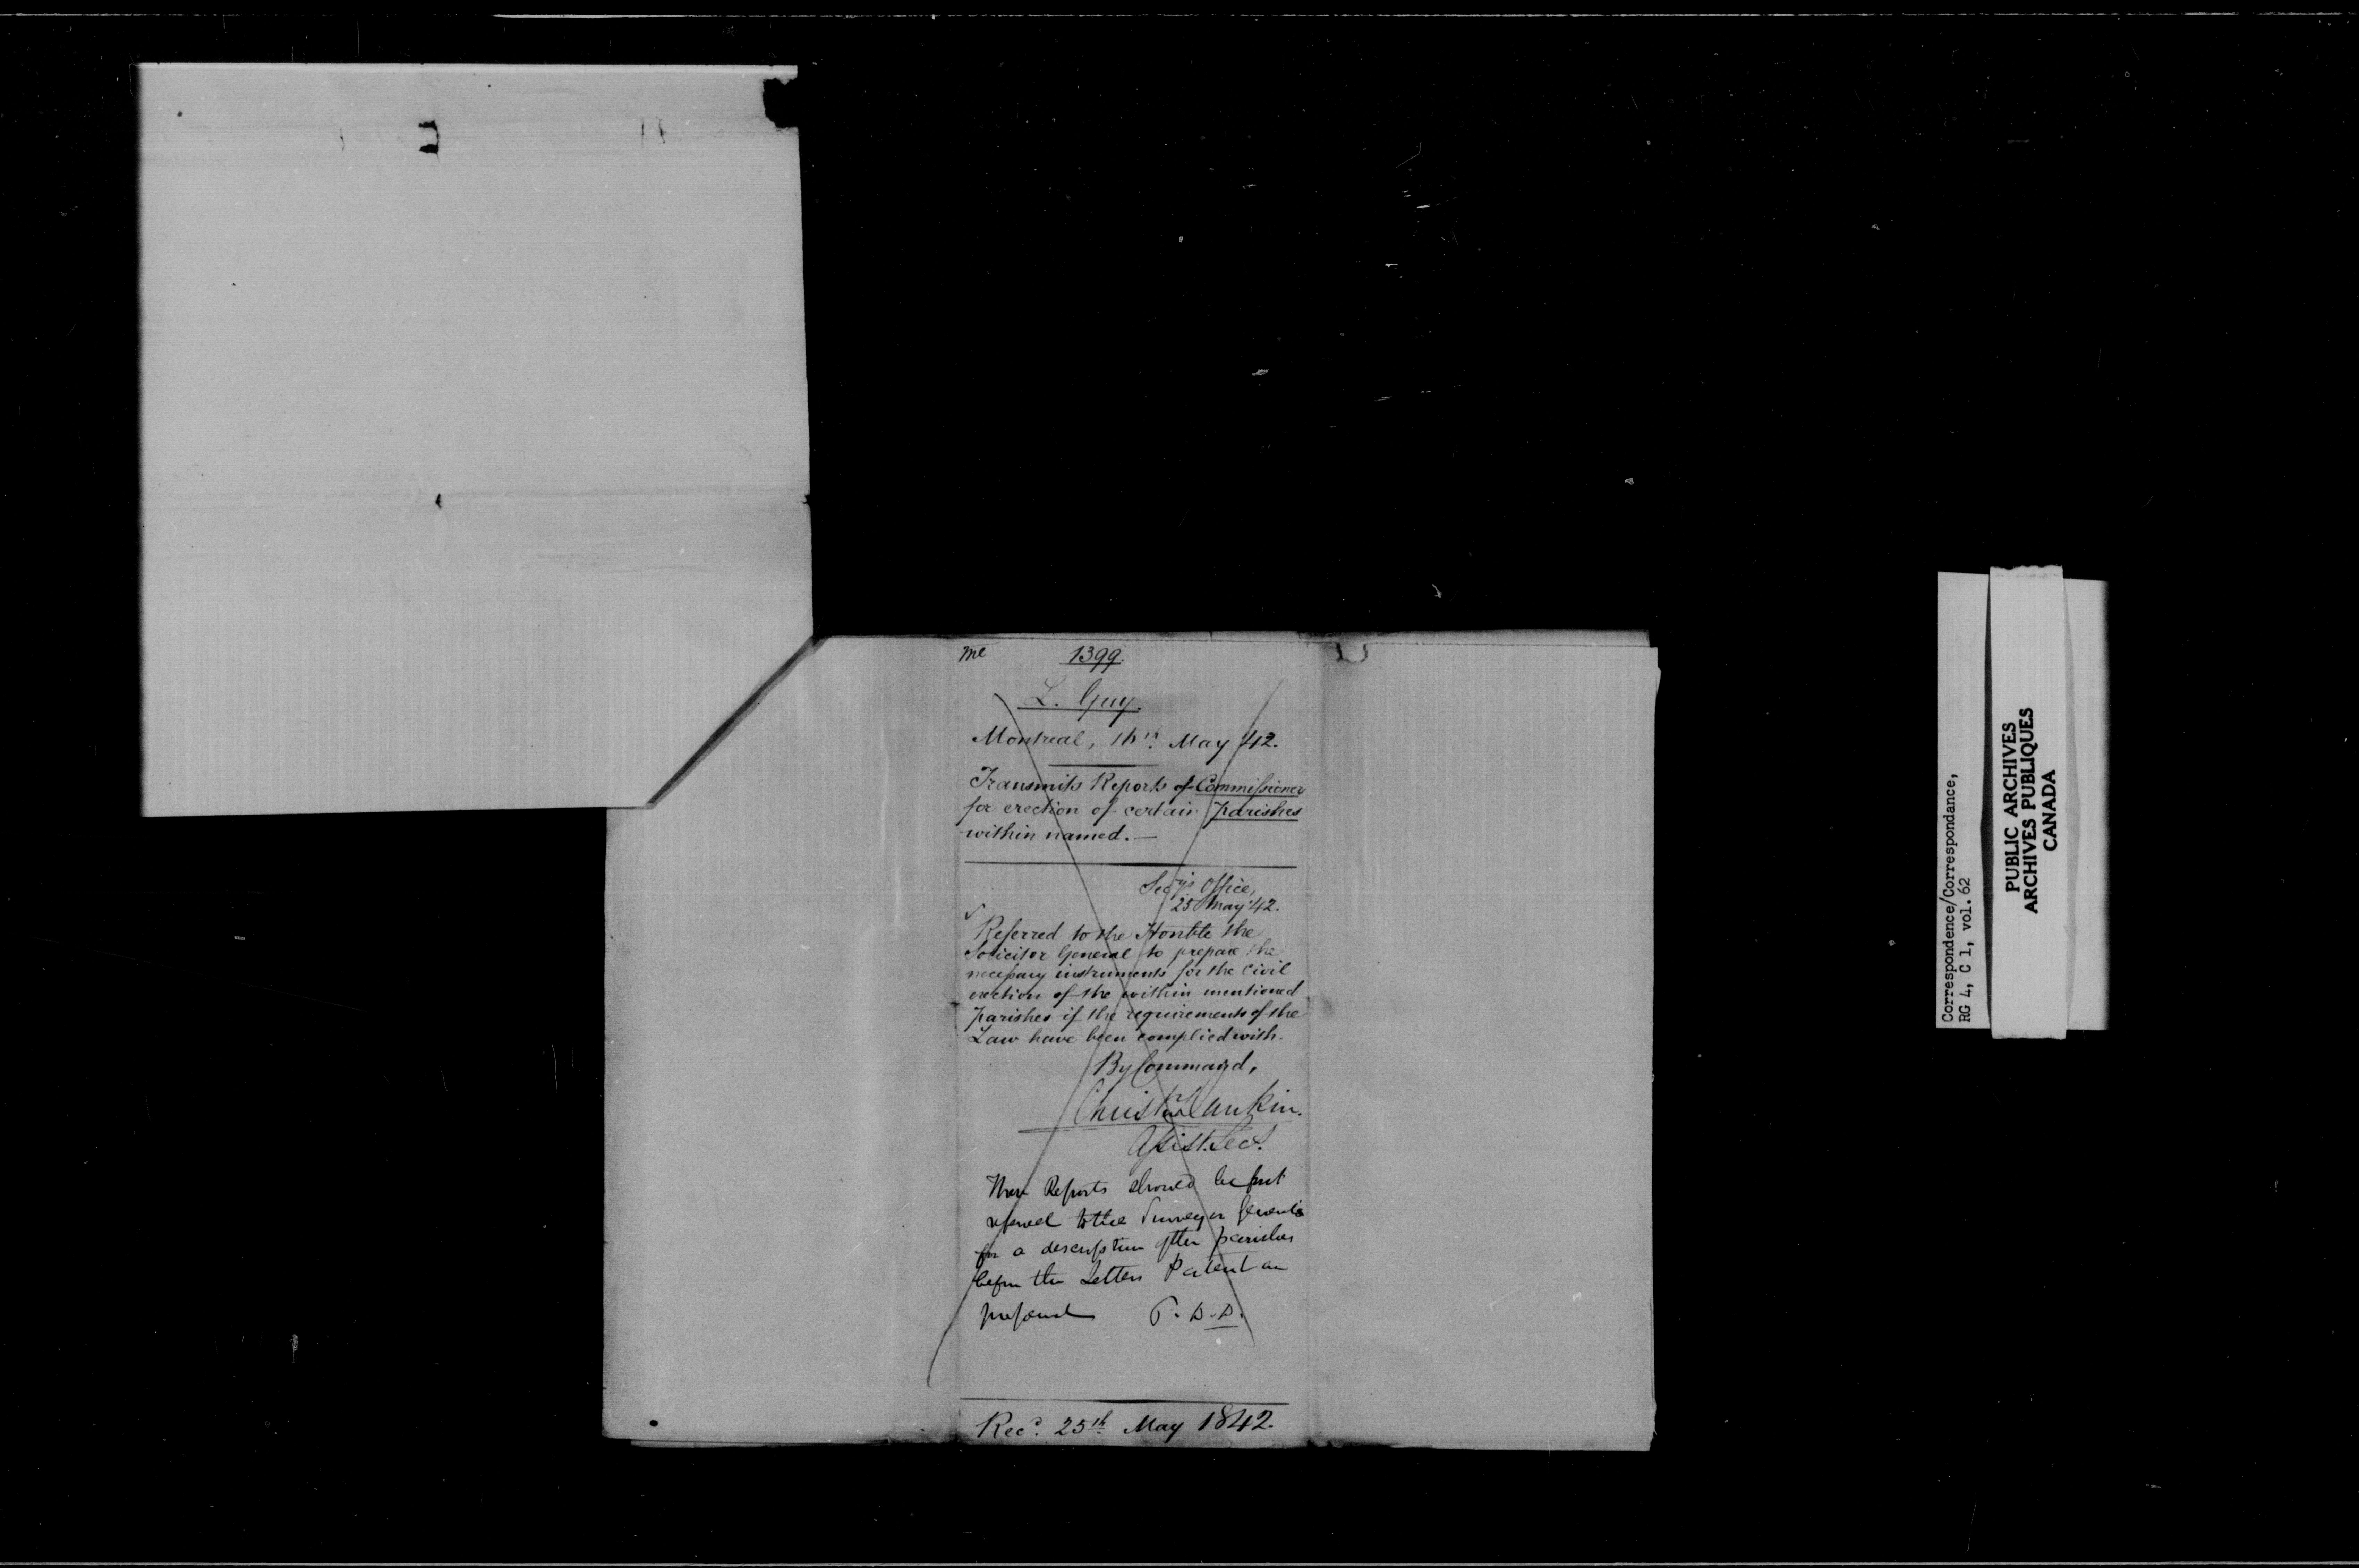 me 1399
L. Guy
Montreal, 16th May /42.
Transmits Reports of Commissioner
for erection of certain parishes
within named. —
Secy's Office,
25 May '42.
Referred to the Honble the
Solicitor General to prepare the
necessary instruments for the Civil
erection of the within mentioned
parishes if the requirements of the
Law have been complied with.
By Command,
Rankin.
Assist. Secy.
These Reports should be first
referred to the Surveyor General
for a description of the parishes
before the Letters Patent are
prepared D. D.
Recd. 25th May 1842.
Correspondence/Correspondance,
RG 4, C 1, vol. 62
PUBLIC ARCHIVES
ARCHIVES PUBLIQUES
CANADA